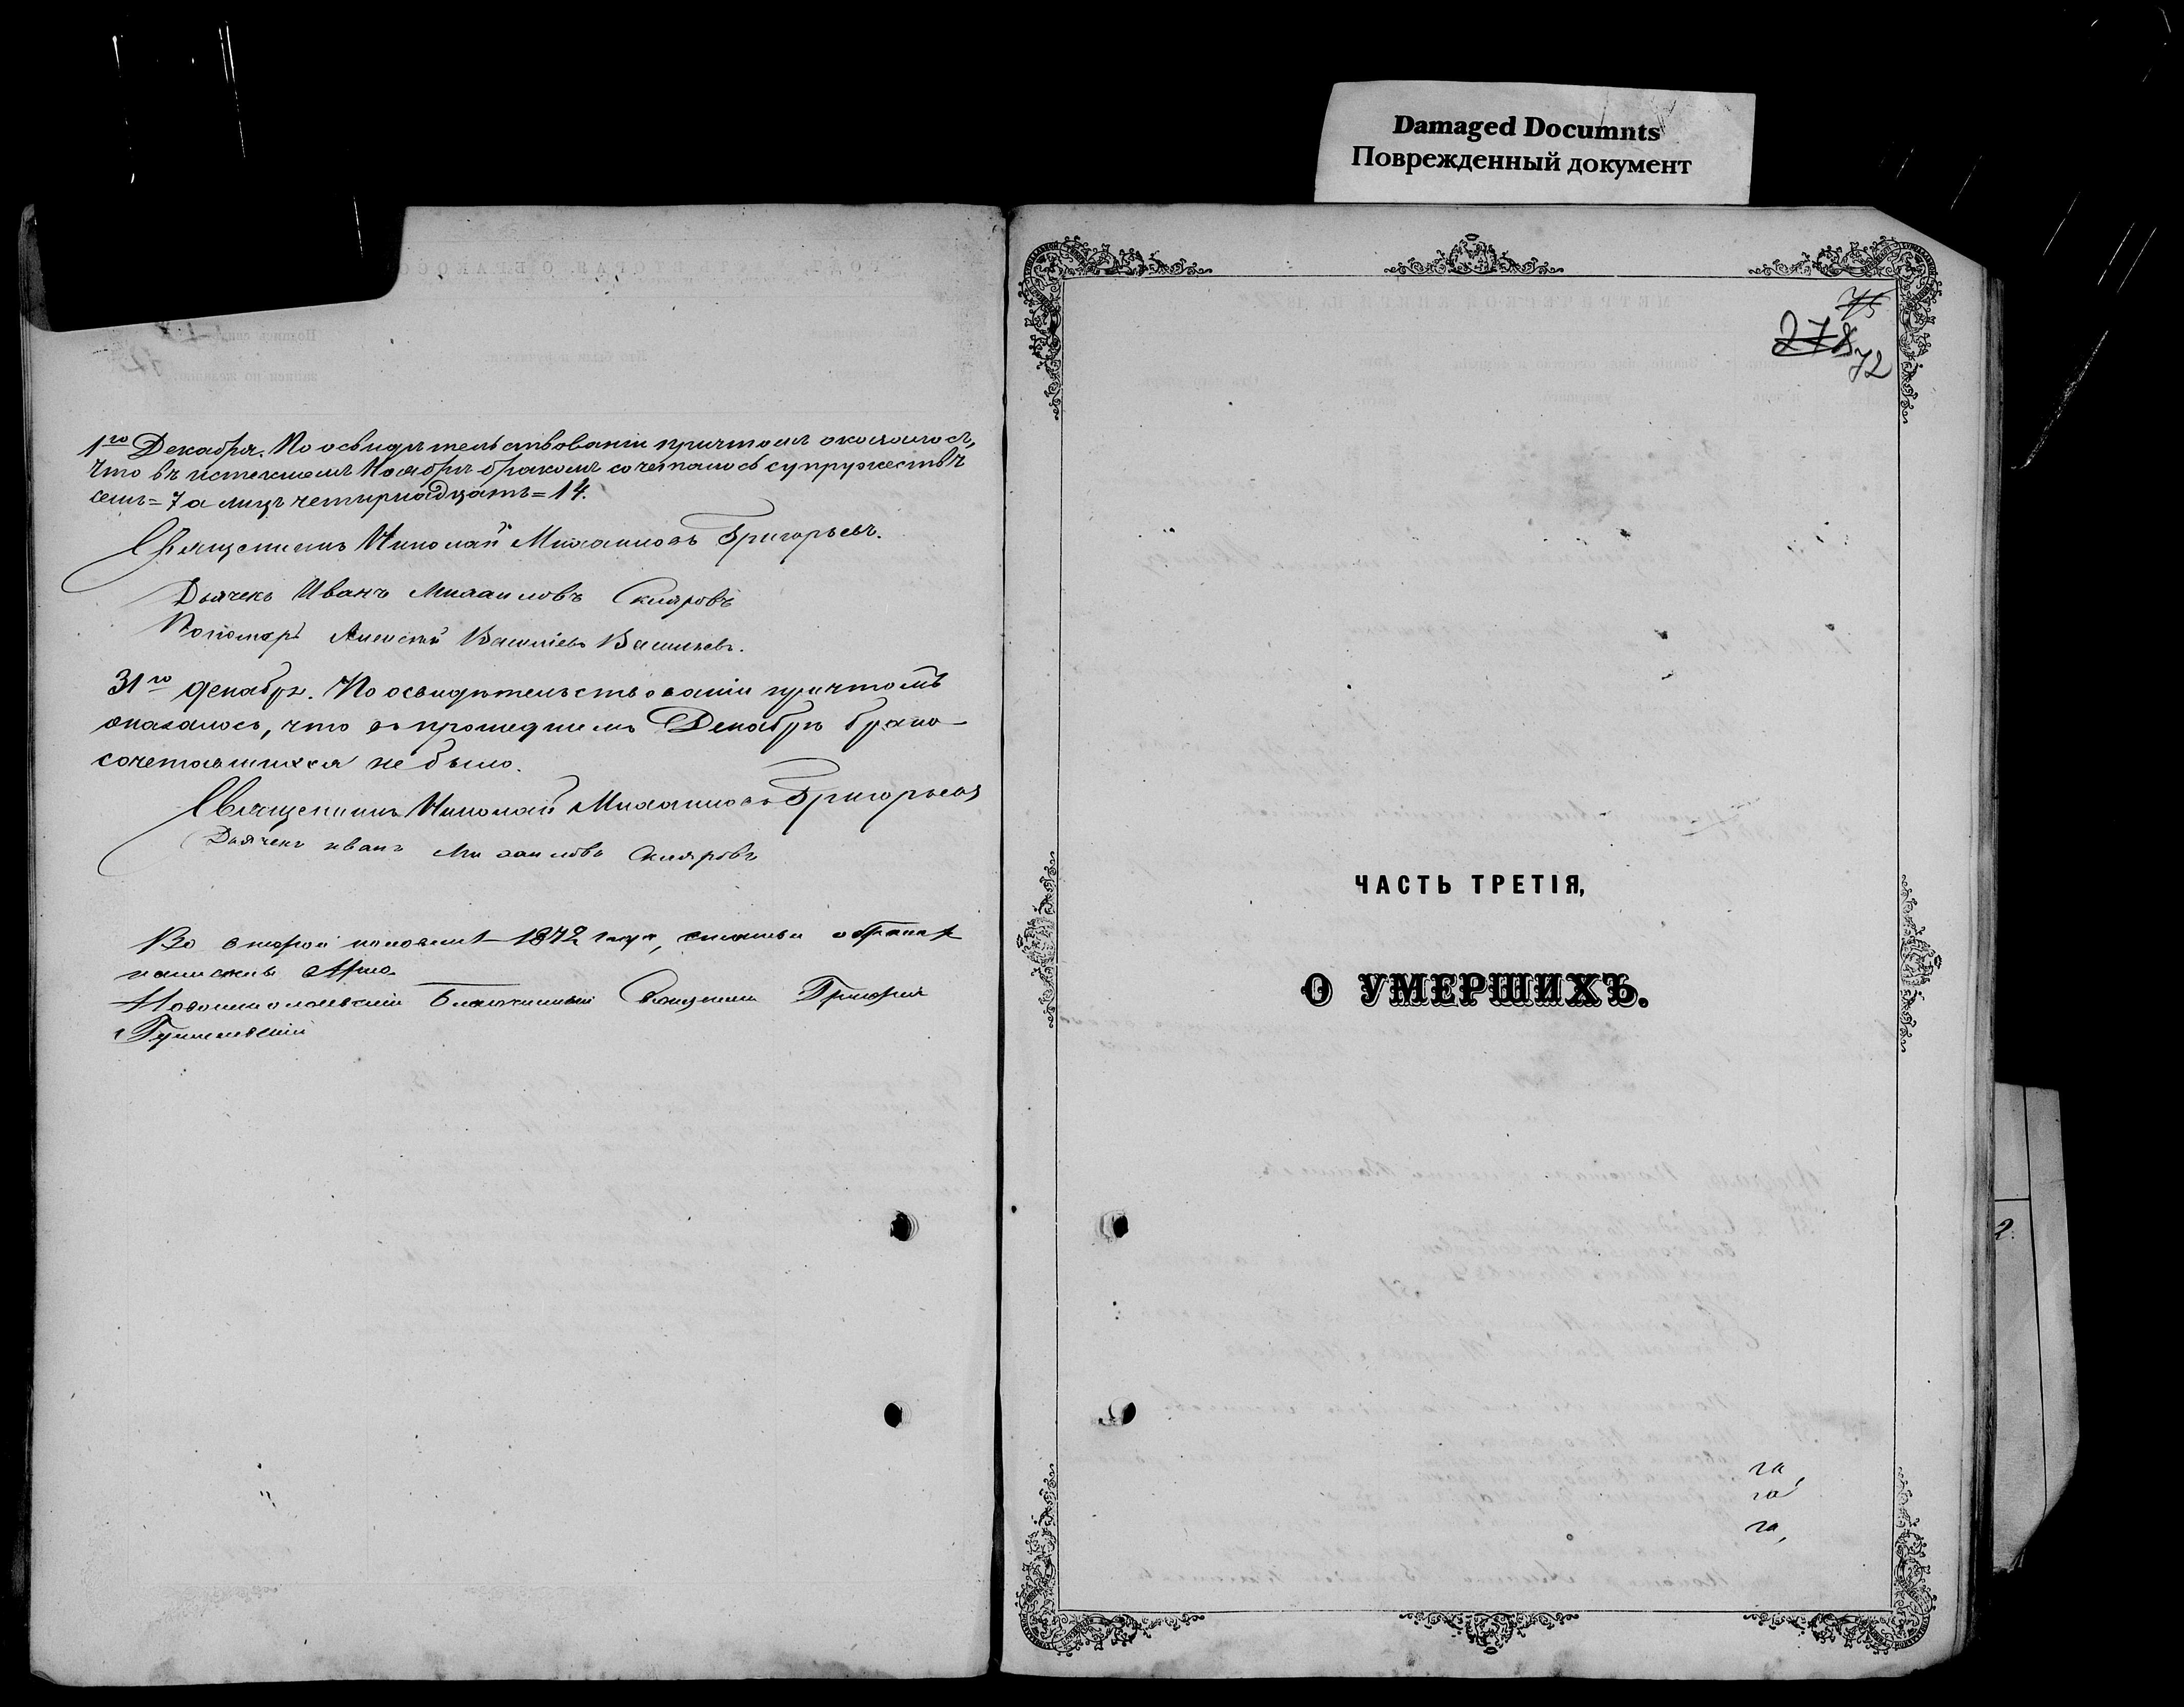 Damaged Documnts
Поврежденный документ
1го Декабря. По освидѣтельствованіи причтомъ оказалось,
что въ истекшемъ Ноябрѣ бракомъ сочеталось супружествъ
семь = 7 а лицъ четырнадцать = 14.
Священникъ Николай Михаиловъ Григорьевъ.
Дьячекъ Иванъ Михаиловъ Скляровъ
Пономарь Алексѣй Василіевъ Васильевъ.
31го Декабря. По освидѣтельствованіи причтомъ
оказалось, что въ прошедшемъ Декабрѣ брако-
сочетавшихся не было.
Священникъ Николай Михаиловъ Григорьевъ
Дьячекъ Иванъ Михаиловъ Скляровъ
Во второй половинѣ 1872 года, статьи о бракахъ
Благочинный Священникъ Григорій
75
278
72
ЧАСТЬ ТРЕТІЯ,
О УМЕРШИХЪ.
га,
га,
га,
2.